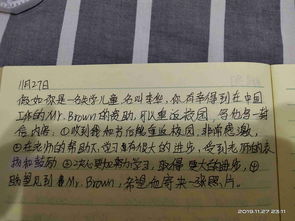 11月27日
假如你是一名失学儿童,名叫李华,你有幸得到在中国
工作的Mr.Brown的资助,可以重返校园,写他写一封
信内容:①收到我和书信能重返校园,非常感激,
②在老师的帮助下,学习有很大的进步,受到老师的表
扬和鼓励③决心更加努力学习,取得更大的进步,④
盼望见到Mr.Brown,希望他寄来一张照片。
2019.11.27 23:11